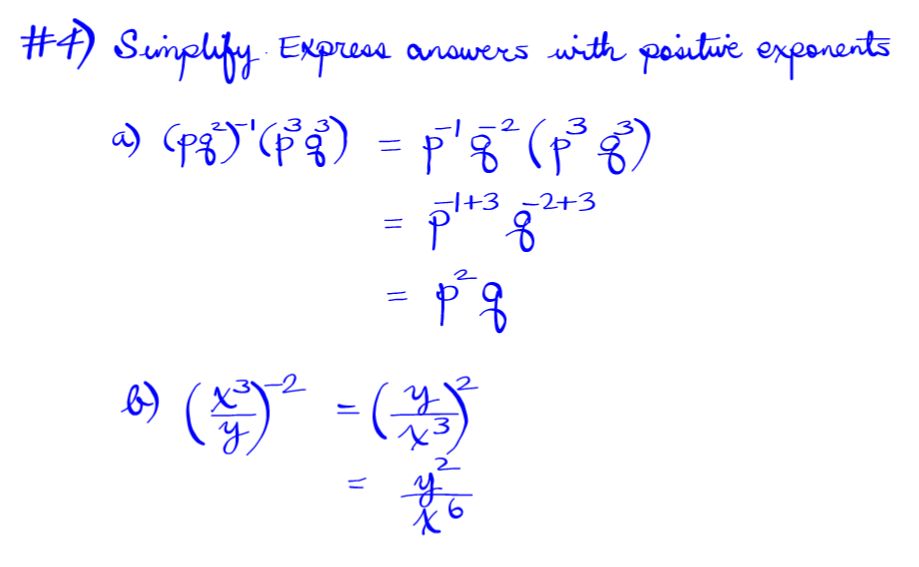 #4) Simplify. Express answers with positive exponents
a) (pq²)⁻¹(p³q³) = p⁻¹q⁻²(p³q³)
= p⁻¹⁺³ q⁻²⁺³
= p²q
b) (x³/y)⁻² = (y/x³)²
= y²/x⁶